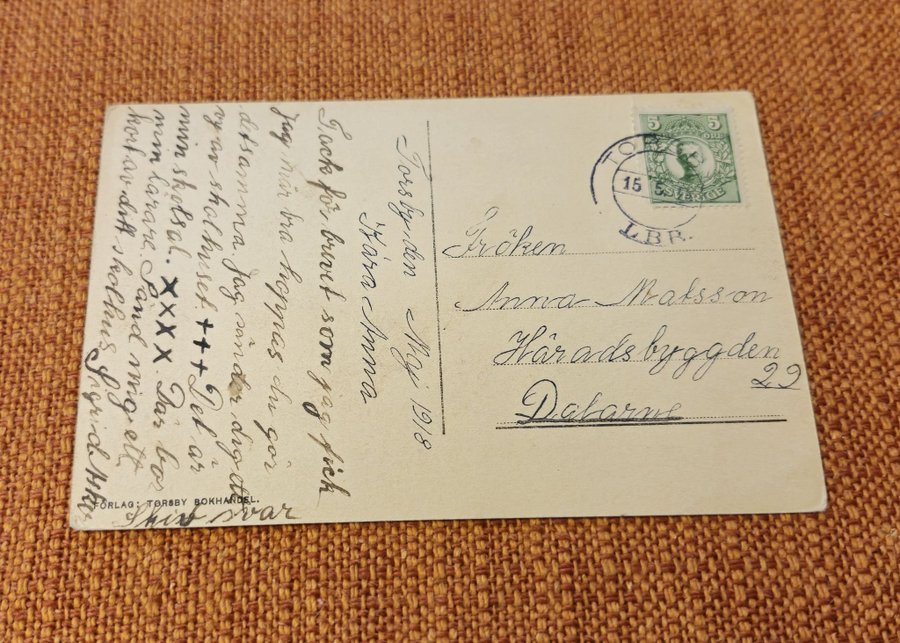 Torsby den Maj 1918
Kära Anna
Tack för brevet som jag fick
Jag mår bra hoppas du gör
detsamma Jag sänder dig ett
vy av skolhuset +++ Det är
min skolsal. XXXX Där bor
min lärare. Sänd mig ett
kort av ditt skolhus Sigrid
Skriv svar
FÖRLAG: TORSBY BOKHANDEL.
5 5
SVERIGE
TORSBY
15 5
LBR.
Fröken
Anna Matsson
Häradsbyggden
22
Dalarne